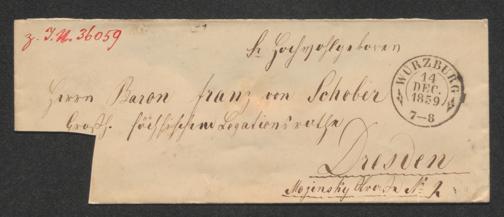 z. I.N. 36059
Sr Hochwohlgeboren
WÜRZBURG
14
DEC.
1859
7-8
Herrn Baron Franz von Schober
Großh. Sächsischem Legationsrathe
Dresden